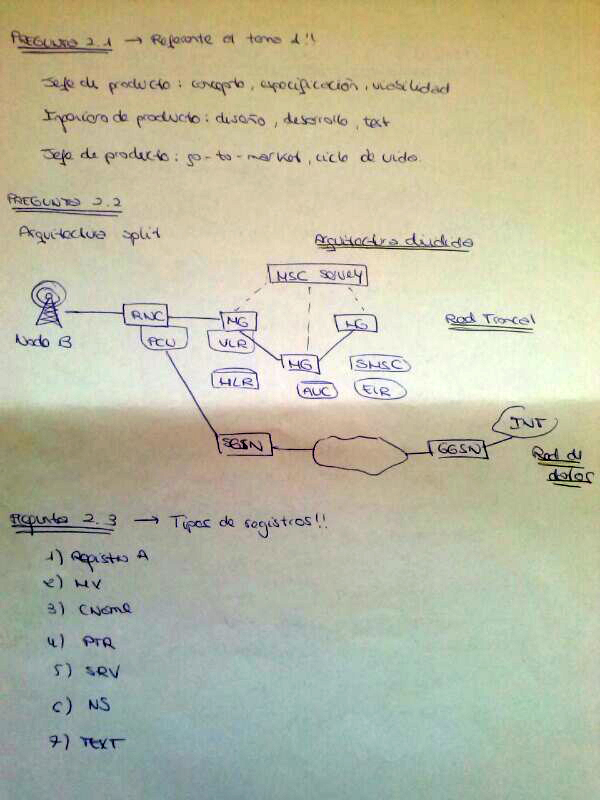 PREGUNTA 2.1 → Referente al tema 1!!
Jefe de producto: concepto, especificación, viabilidad
Ingeniero de producto: diseño, desarrollo, test
Jefe de producto: go-to-market, ciclo de vida.
PREGUNTA 2.2
Arquitectura split
Arquitectura dividida
MSC server
RNC
MG
MG
Red Troncal
Nodo B
PCU
VLR
MG
SMSC
HLR
AUC
EIR
INT
SGSN
GGSN
Red de datos
Pregunta 2.3 → Tipos de registros!!
1) Registro A
2) MX
3) CName
4) PTR
5) SRV
6) NS
7) TEXT